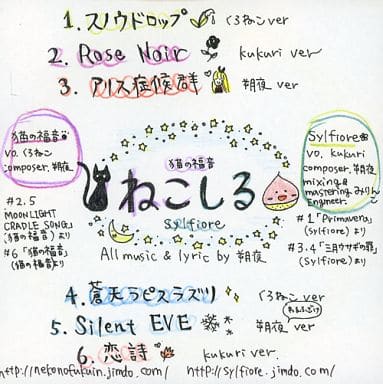 1. スノウドロップ くろねこ ver
2. Rose Noir kukuri ver
3. アリス症候群 朔夜 ver
猫の福音
vo. くろねこ
composer. 朔夜
#2.5
MOONLIGHT
CRADLE SONG」
(猫の福音) より
#6「猫の福音」
(猫の福音)より
猫の福音
ねこしる
Sylfiore
All music & lyric by 朔夜
Sylfiore
vo. kukuri
composer. 朔夜
mixing &
mastering みりん
Engineer.
#1「Primavera」
(Sylfiore) より
#3.4「三月ウサギの罪」
(Sylfiore) より
4. 蒼天ラピスラズリ くろねこ ver
5. Silent EVE 朔夜 ver
6. 恋詩 kukuri ver.
http://nekonofukuin.jimdo.com/ http://sylfiore.jimdo.com/